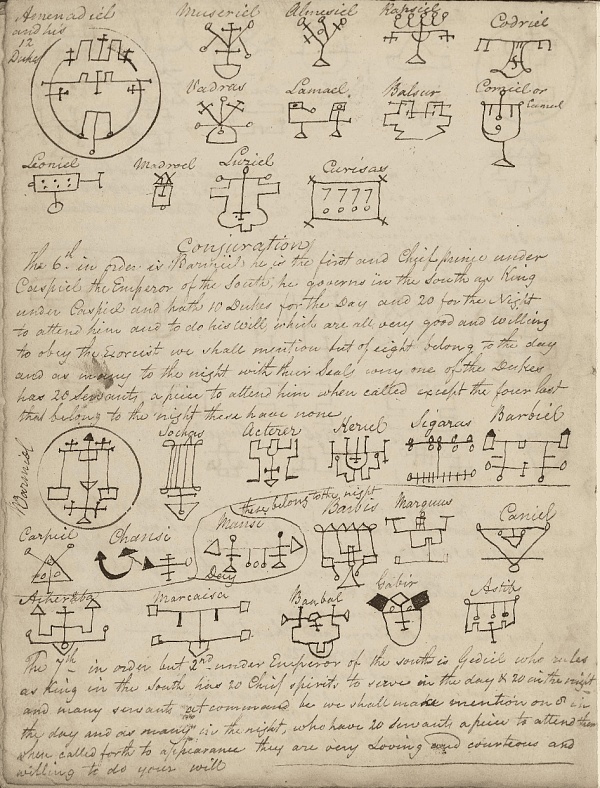 Amenadiel Museriel Almesiel Rapsiel Codriel
and his
12
Dukes
Vadras Lamael Balsur Corziel or
Camiel
Leoniel Madroel Luziel Curisas
7777
Conjuration
The 6th in order is Barmiel he is the first and Chief prince under
Caspiel the Emperor of the South, he governs in the South as King
under Caspiel and hath 10 Dukes for the Day and 20 for the Night
to attend him and to do his Will which are all very good and willing
to obey the Exorcist we shall mention but of eight belong to the day
and as many to the night with their Seals every one of the Dukes
has 20 Servants a piece to attend him when called except the four last
that belong to the night these have none
Barmiel Sochas Acterer Keriel Sigaras Barbiel
these belong to the night
Carpiel Chansi Mansi Barbis Marquus Caniel
Day
Acheraba Marcaisa Banbal Gabir Astib
The 7th in order but 2nd under Emperor of the south is Gediel who rules
as King in the South has 20 Chief spirits to serve in the day & 20 in the night
and many servants at command be we shall make mention on 8 in
the day and as many in the night, who have 20 servants a piece to attend them
when called forth to appearance they are very Loving and courteous and
willing to do your will